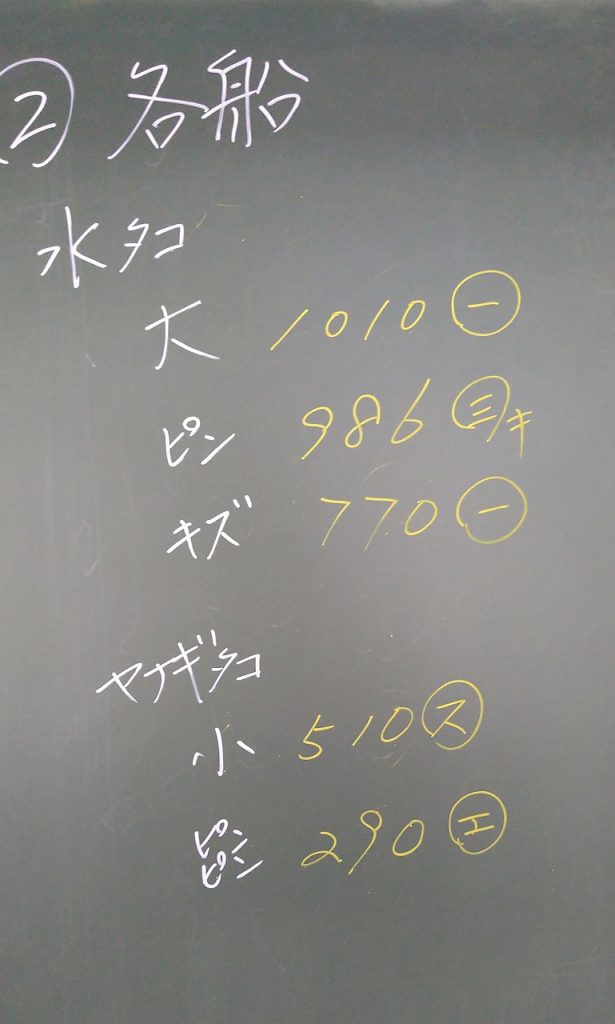 ② 各船
水タコ
大 1010 ㊀
ピン 986 ㊂キ
キズ 770 ㊀
ヤナギタコ
小 510 ㋜
ピンピン 290 ㋓